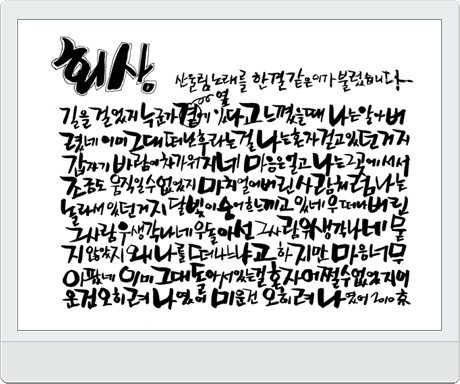 회상
산울림 노래를 한결같은이가 불렀습니다
옆
길을 걸었지 누군가 곁에 있다고 느꼈을때 나는 알아버
렸네 이미 그대 떠난후라는걸 나는 혼자 걷고 있던거지
갑자기 바람이 차가워지네 마음은 얼고 나는 그곳에 서서
조금도 움직일수 없었지 마치 얼어버린 사람처럼 나는
놀라서 있던거지 달빛이 숨어 흐느끼고 있네 우 떠나버린
그사람 우 생각나네 우 돌아선 그사람 우 생각나네 묻
지 않았지 왜 나를 떠나느냐고 하지만 마음 너무
아팠네 이미 그대 돌아서있는걸 혼자 어쩔수 없었지 미
운건 오히려 나였어 미운건 오히려 나였어 2010